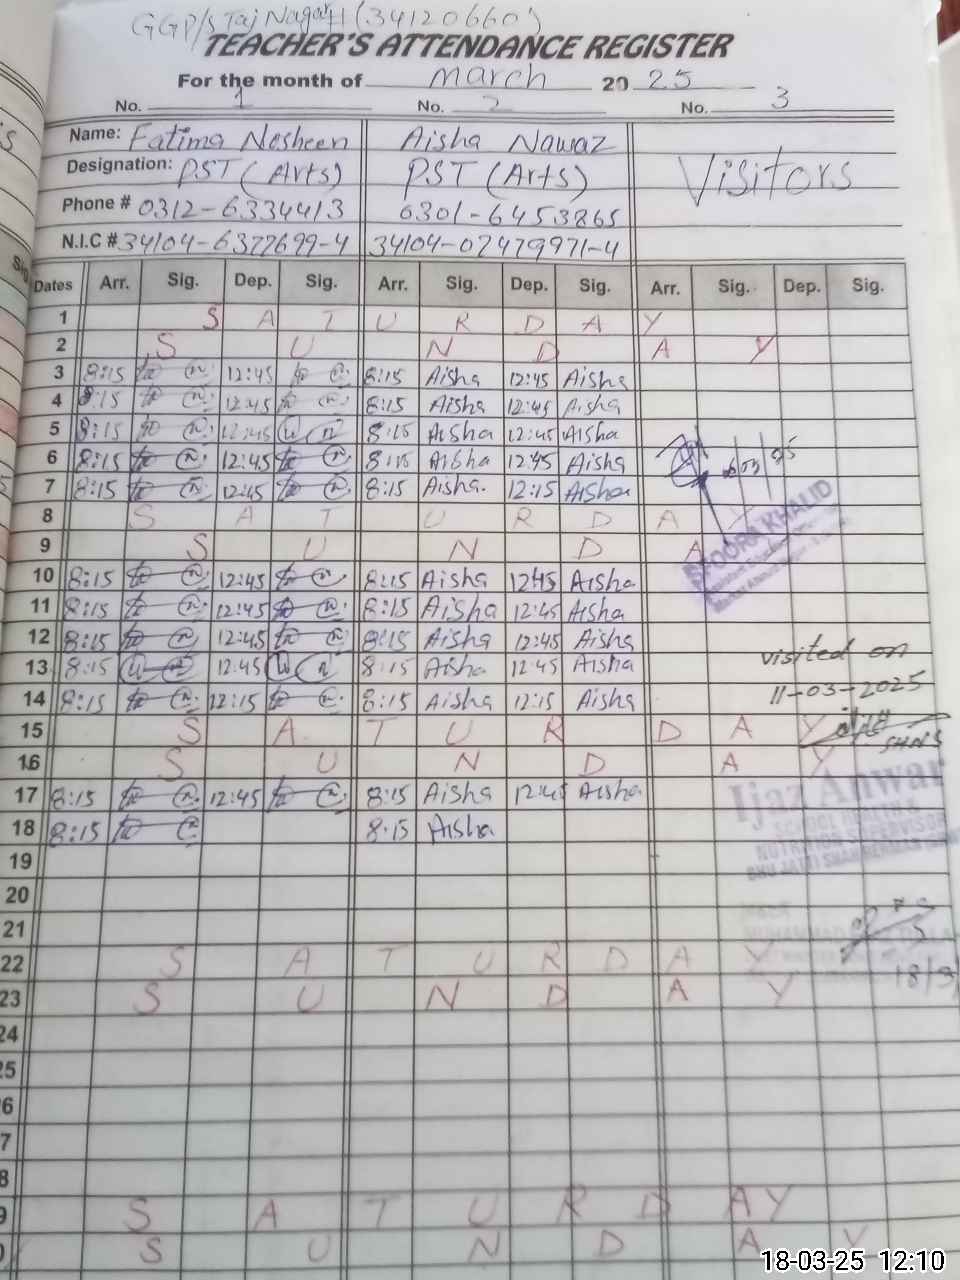 GGP/S Taj Nagar H (34120660)
TEACHER'S ATTENDANCE REGISTER
For the month of march 2025
No. 1 No. 2 No. 3
Name: Fatima Nosheen Aisha Nawaz Visitors
Designation: PST (Arts) PST (Arts)
Phone # 0312-6334413 0301-6453865
N.I.C # 34104-6377699-4 34104-02479971-4
Dates Arr. Sig. Dep. Sig. Arr. Sig. Dep. Sig. Arr. Sig. Dep. Sig.
1 S A T U R D A Y
2 S U N D A Y
3 8:15 12:45 8:15 Aisha 12:45 Aisha
4 8:15 12:45 8:15 Aisha 12:45 Aisha
5 8:15 12:45 8:15 Aisha 12:45 Aisha
6 8:15 12:45 8:15 Aisha 12:45 Aisha
7 8:15 12:45 8:15 Aisha 12:15 Aisha
8 S A T U R D A Y
9 S U N D A
KHALID
10 8:15 12:45 8:15 Aisha 12:45 Aisha
11 8:15 12:45 8:15 Aisha 12:45 Aisha
12 8:15 12:45 8:15 Aisha 12:45 Aisha
13 8:15 12:45 8:15 Aisha 12:45 Aisha
visited on
14 8:15 12:15 8:15 Aisha 12:15 Aisha
11-03-2025
15 S A T U R D A Y
SHNS
16 S U N D A Y
17 8:15 12:45 8:15 Aisha 12:45 Aisha
Ijaz Anwar
SCHOOL HEALTH &
NUTRITION SUPERVISOR
18 8:15 8:15 Aisha
BHU JATTI SHAH REHMAN
19
20
21
22 S A T U R D A Y
18/3
23 S U N D A Y
24
25
6
7
8
9 S A T U R D A Y
0 S U N D A Y
18-03-25 12:10